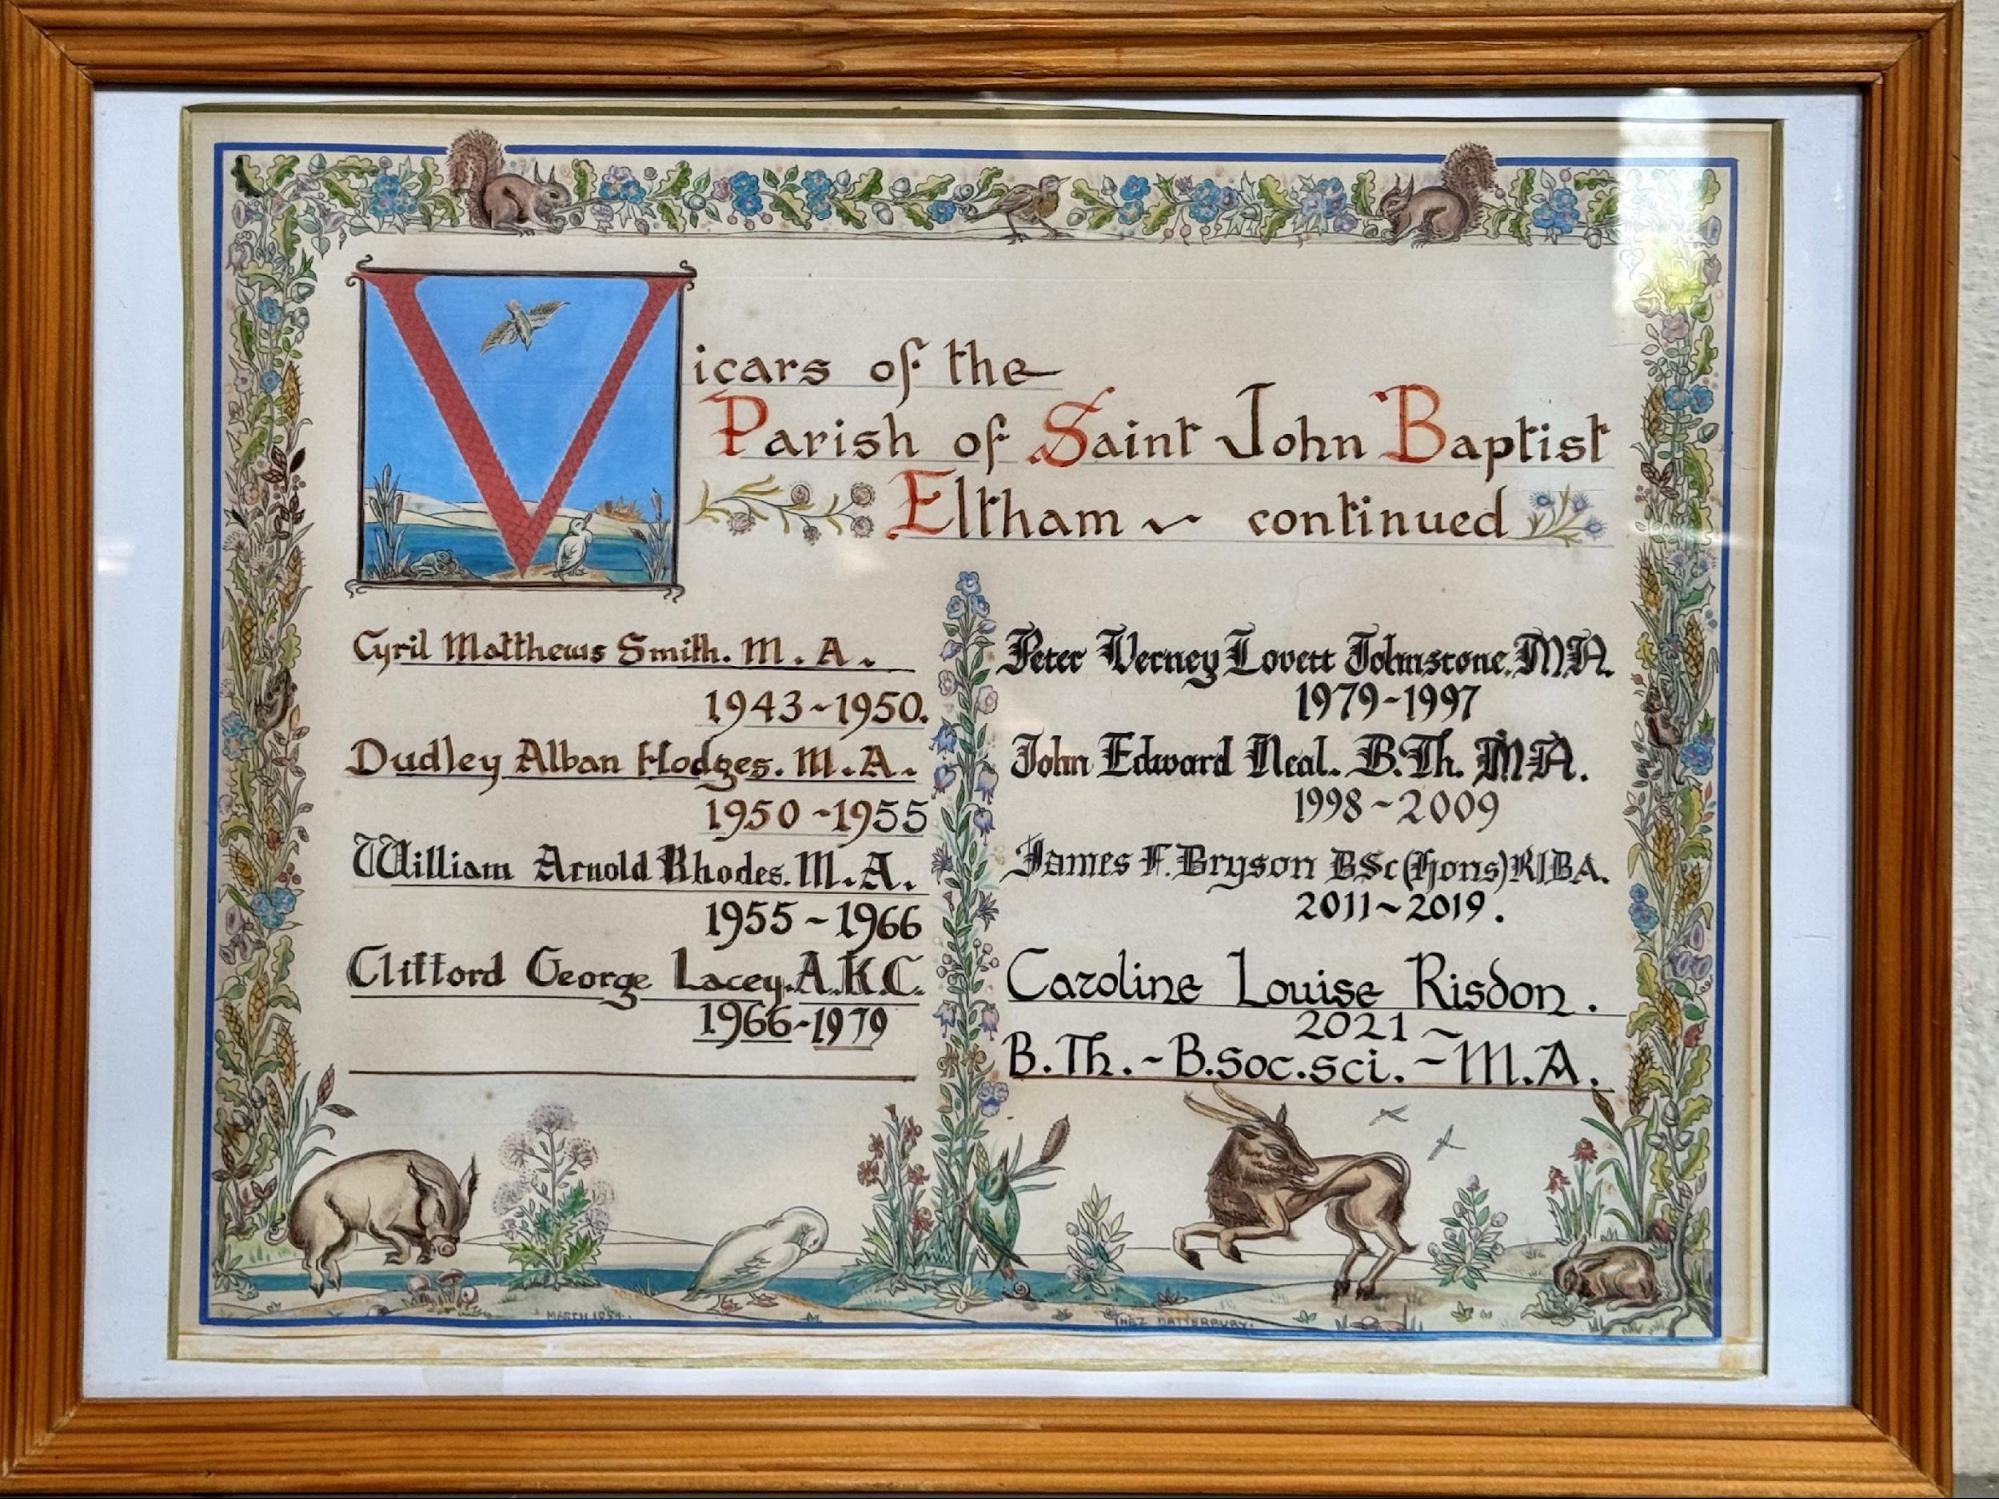 Vicars of the
Parish of Saint John Baptist
Eltham ~ continued
Cyril Matthews Smith. M. A.
1943~1950.
Dudley Alban Hodges. M. A.
1950~1955
William Arnold Rhodes. M. A.
1955~1966
Clifford George Lacey. A.K.C.
1966-1979
Peter Verney Lovett Johnstone. MA.
1979-1997
John Edward Neal. B.Th. MA.
1998~2009
James F. Bryson BSc (Hons) RIBA.
2011~2019.
Caroline Louise Risdon.
2021~
B.Th. ~ B.Soc.sci. ~ M.A.
MARCH
BATTERBURY.